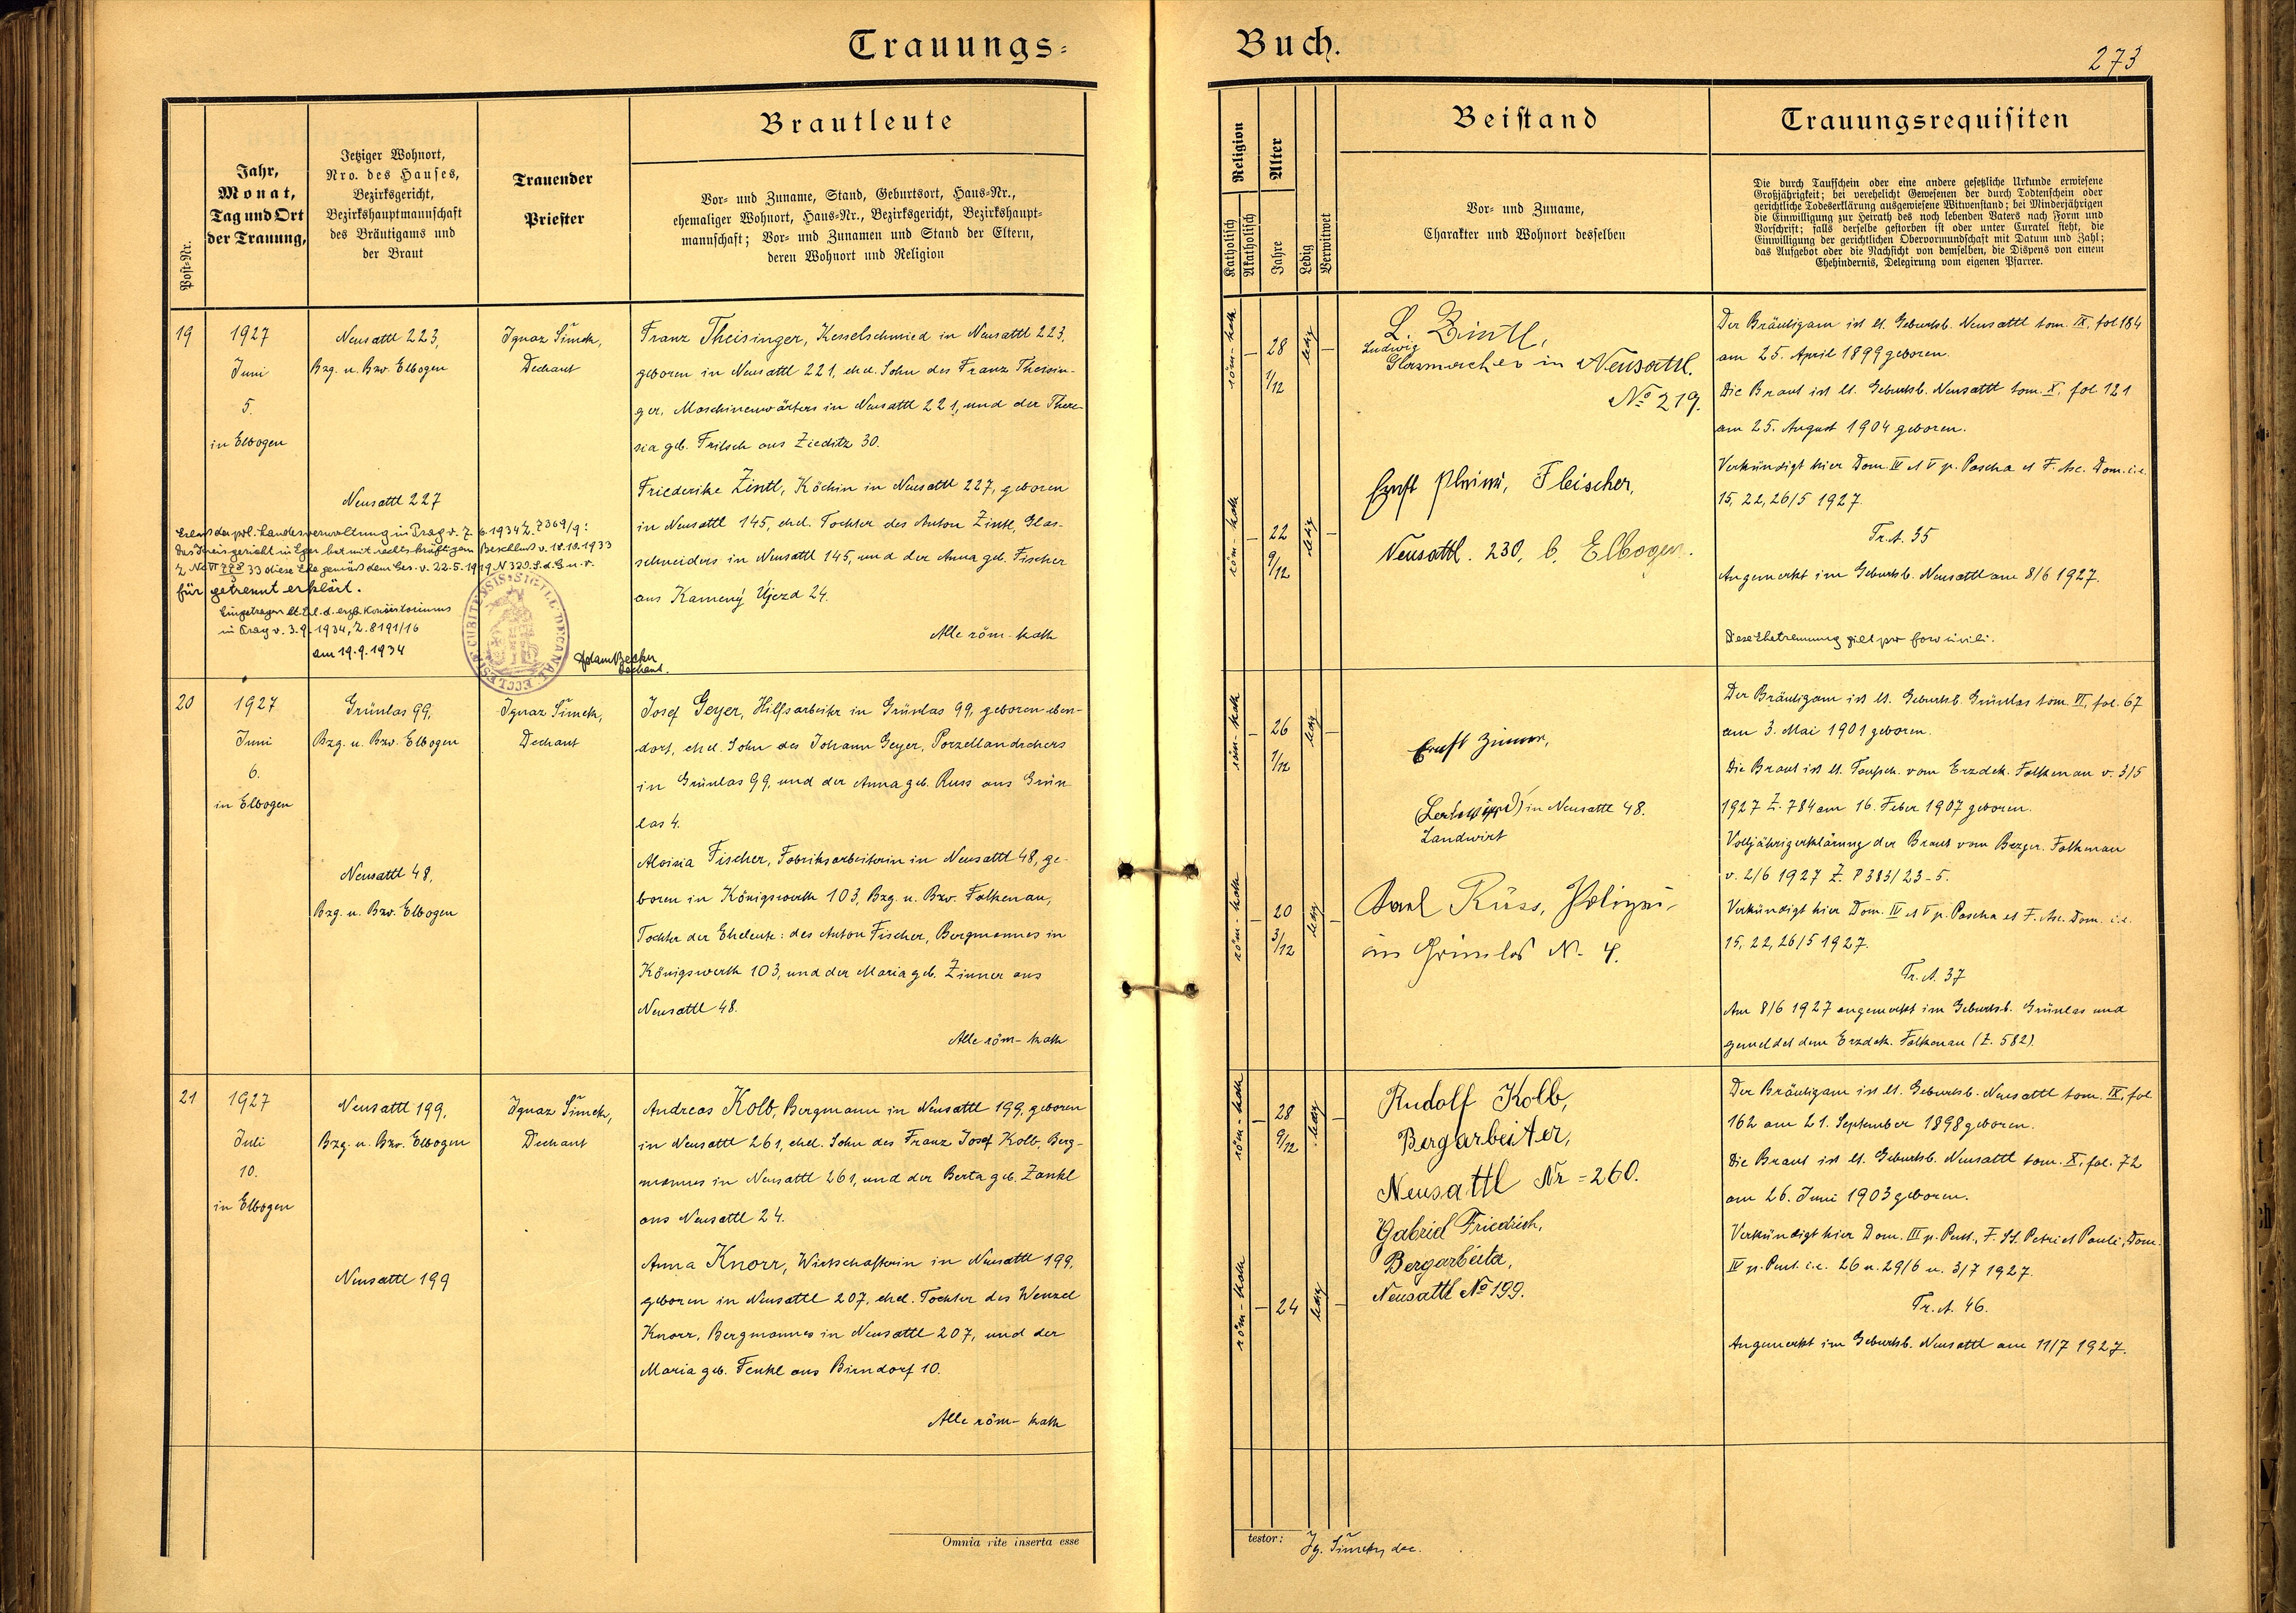 Trauungs-
Buch.
273
Post-Nr.
Jahr,
Monat,
Tag und Ort
der Trauung,
Jetziger Wohnort,
Nro. des Hauses,
Bezirksgericht,
Bezirkshauptmannschaft
des Bräutigams und
der Braut
Trauender
Priester
Brautleute
Vor- und Zuname, Stand, Geburtsort, Haus-Nr.,
ehemaliger Wohnort, Haus-Nr., Bezirksgericht, Bezirkshaupt-
mannschaft; Vor- und Zunamen und Stand der Eltern,
deren Wohnort und Religion
Religion
Katholisch
Akatholisch
Alter
Jahre
Ledig
Verwitwet
Beistand
Vor- und Zuname,
Charakter und Wohnort desselben
Trauungsrequisiten
Die durch Taufschein oder eine andere gesetzliche Urkunde erwiesene
Großjährigkeit; bei verehelicht Gewesenen der durch Todtenschein oder
gerichtliche Todeserklärung ausgewiesene Witwenstand; bei Minderjährigen
die Einwilligung zur Heirath des noch lebenden Vaters nach Form und
Vorschrift; falls derselbe gestorben ist oder unter Curatel steht, die
Einwilligung der gerichtlichen Obervormundschaft mit Datum und Zahl;
das Aufgebot oder die Nachsicht von demselben, die Dispens von einem
Ehehindernis, Delegirung vom eigenen Pfarrer.
19
1927
Juni
5.
in Elbogen
Neusattl 223,
Bzg. u. Bzv. Elbogen
Neusattl 227
Ignaz Šimek,
Dechant
Franz Theisinger, Kesselschmied in Neusattl 223,
geboren in Neusattl 221, ehel. Sohn des Franz Theisin-
ger, Maschinenwärters in Neusattl 221, und der There-
sia geb. Fritsch aus Zieditz 30.
Friederike Zintl, Köchin in Neusattl 227, geboren
in Neusattl 145, ehel. Tochter des Anton Zintl, Glas-
schneiders in Neusattl 145, und der Anna geb. Fischer
aus Kamený Újezd 24.
Alle röm-kath
Erlaß der pol. Landesverwaltung in Prag v. 7.6.1934 Z. 7369/9:
Das Kreisgericht in Eger hat mit rechtskräftigem Beschluß v. 18.10.1933
33 diese Ehe gemäß dem Ges. v. 22.5.1919 N 320 S.d.G.u.V.
für getrennt erklärt.
Eingetragen lt. Erl. d. erzb. Konsistoriums
in Prag v. 3.9.1934, Z. 8191/16
am 19.9.1934
SIGILL. DECANAL. ECCLESIÆ CUBITENSIS
Adam Becker
Dechant.
röm-kath
28
1/12
ledig
röm-kath
22
9/12
ledig
L. Zintl,
Ludwig
Glasmacher in Neusattl.
No 219.
Fleischer,
Neusattl. 230, b. Elbogen.
Der Bräutigam ist lt. Geburtsb. Neusattl tom. IX, fol 184
am 25. April 1899 geboren.
Die Braut ist lt. Geburtsb. Neusattl tom. X, fol. 121
am 25. August 1904 geboren.
Verkündigt hier Dom. IV et V p. Pascha et F. Asc. Dom. i.e.
15, 22, 26/5 1927.
Tr. A. 35
Angemerkt im Geburtsb. Neusattl am 8/6 1927.
Diese Ehetrennung gilt pro foro civili.
20
1927
Juni
6.
in Elbogen
Grünlas 99,
Bzg. u. Bzv. Elbogen
Neusattl 48,
Bzg. u. Bzv. Elbogen
Ignaz Šimek,
Dechant
Josef Geyer, Hilfsarbeiter in Grünlas 99, geboren eben-
dort, ehel. Sohn des Johann Geyer, Porzellandrehers
in Grünlas 99, und der Anna geb. Russ aus Grün-
las 4.
Aloisia Fischer, Fabriksarbeiterin in Neusattl 48, ge-
boren in Königswerth 103, Bzg. u. Bzv. Falkenau,
Tochter der Eheleute: des Anton Fischer, Bergmannes in
Königswerth 103, und der Maria geb. Zinner aus
Neusattl 48.
Alle röm-kath
röm-kath
26
1/12
ledig
röm-kath
20
3/12
ledig
Ernst Zinner,
in Neusattl 48.
Landwirt
Karl Rüss, Polizei-
in Grünlas N. 4.
Der Bräutigam ist lt. Geburtsb. Grünlas tom. VI, fol. 67
am 3. Mai 1901 geboren.
Die Braut ist lt. Taufsch. vom Erzdek. Falkenau v. 3/5
1927 Z. 784 am 16. Feber 1907 geboren.
Volljährigerklärung der Braut vom Bezger. Falkenau
v. 2/6 1927 Z. P 383/23-5.
Verkündigt hier Dom. IV et V p. Pascha et F. Asc. Dom. i.e.
15, 22, 26/5 1927.
Tr. A. 37
Am 8/6 1927 angemerkt im Geburtsb. Grünlas und
gemeldet dem Erzdek. Falkenau (Z. 582).
21
1927
Juli
10.
in Elbogen
Neusattl 199,
Bzg. u. Bzv. Elbogen
Neusattl 199
Ignaz Šimek,
Dechant
Andreas Kolb, Bergmann in Neusattl 199, geboren
in Neusattl 261, ehel. Sohn des Franz Josef Kolb, Berg-
mannes in Neusattl 261, und der Berta geb. Zankl
aus Neusattl 24.
Anna Knorr, Wirtschafterin in Neusattl 199,
geboren in Neusattl 207, ehel. Tochter des Wenzel
Knorr, Bergmannes in Neusattl 207, und der
Maria geb. Fenkl aus Birndorf 10.
Alle röm-kath
röm-kath
28
9/12
ledig
röm-kath
24
ledig
Rudolf Kolb,
Bergarbeiter,
Neusattl Nr = 260.
Gabriel Friedrich,
Bergarbeiter,
Neusattl No 199.
Der Bräutigam ist lt. Geburtsb. Neusattl tom. IX, fol
162 am 21. September 1898 geboren.
Die Braut ist lt. Geburtsb. Neusattl tom. X, fol. 72
am 26. Juni 1903 geboren.
Verkündigt hier Dom. III p. Pent., F. SS. Petri et Pauli, Dom.
IV p. Pent. i.e. 26 u. 29/6 u. 3/7 1927.
Tr. A. 46.
Angemerkt im Geburtsb. Neusattl am 11/7 1927.
Omnia rite inserta esse
testor:
Ig. Šimek, dec.